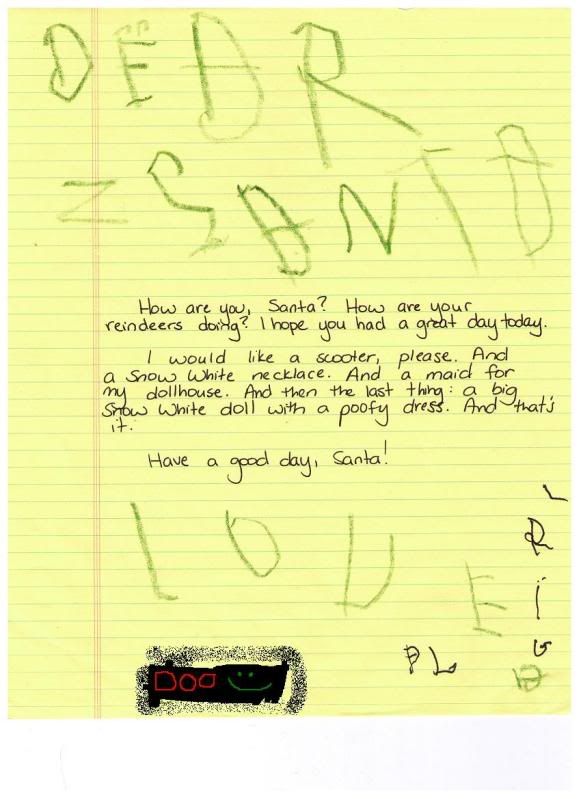 DEAR
SANTA
How are you, Santa? How are your
reindeers doing? I hope you had a great day today.
I would like a scooter, please. And
a Snow White necklace. And a maid for
my dollhouse. And then the last thing: a big
Snow White doll with a poofy dress. And that's
it.
Have a good day, Santa!
LOVE
Boo